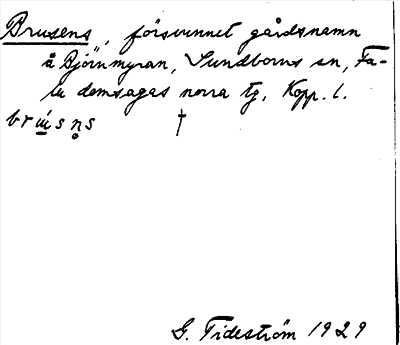 Brusens, försvunnet gårdsnamn
å Björnmyran, Sundborns sn, Fa-
lu domsagas norra tg, Kopp. l.
†
G. Tideström 1929